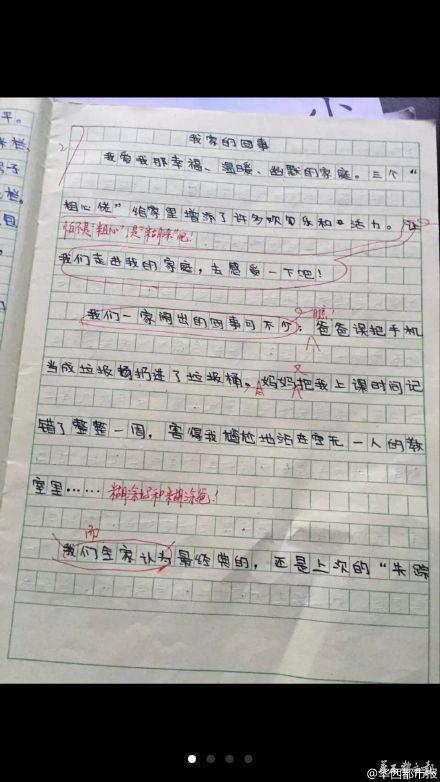 平。
栏,
子
栏。
包
2
我家的囧事
我爱我那幸福、温暖、幽默的家庭。三个“
粗心佬”给家里增添了许多欢乐和活力。让
怕不是“粗心”是“糊涂”吧!
我们走进我的家庭,去感受一下吧!
瞧!
我们一家闹出的囧事可不少:爸爸误把手机
又
当成垃圾扔进了垃圾桶,妈妈把我上课时间记
错了整整一周,害得我尴尬地站在空无一人的教
室里…… 糊涂妈和糊涂爸!
而
我们全家认为最经典的,还是上次的“失踪
华西都市报
@华西都市报